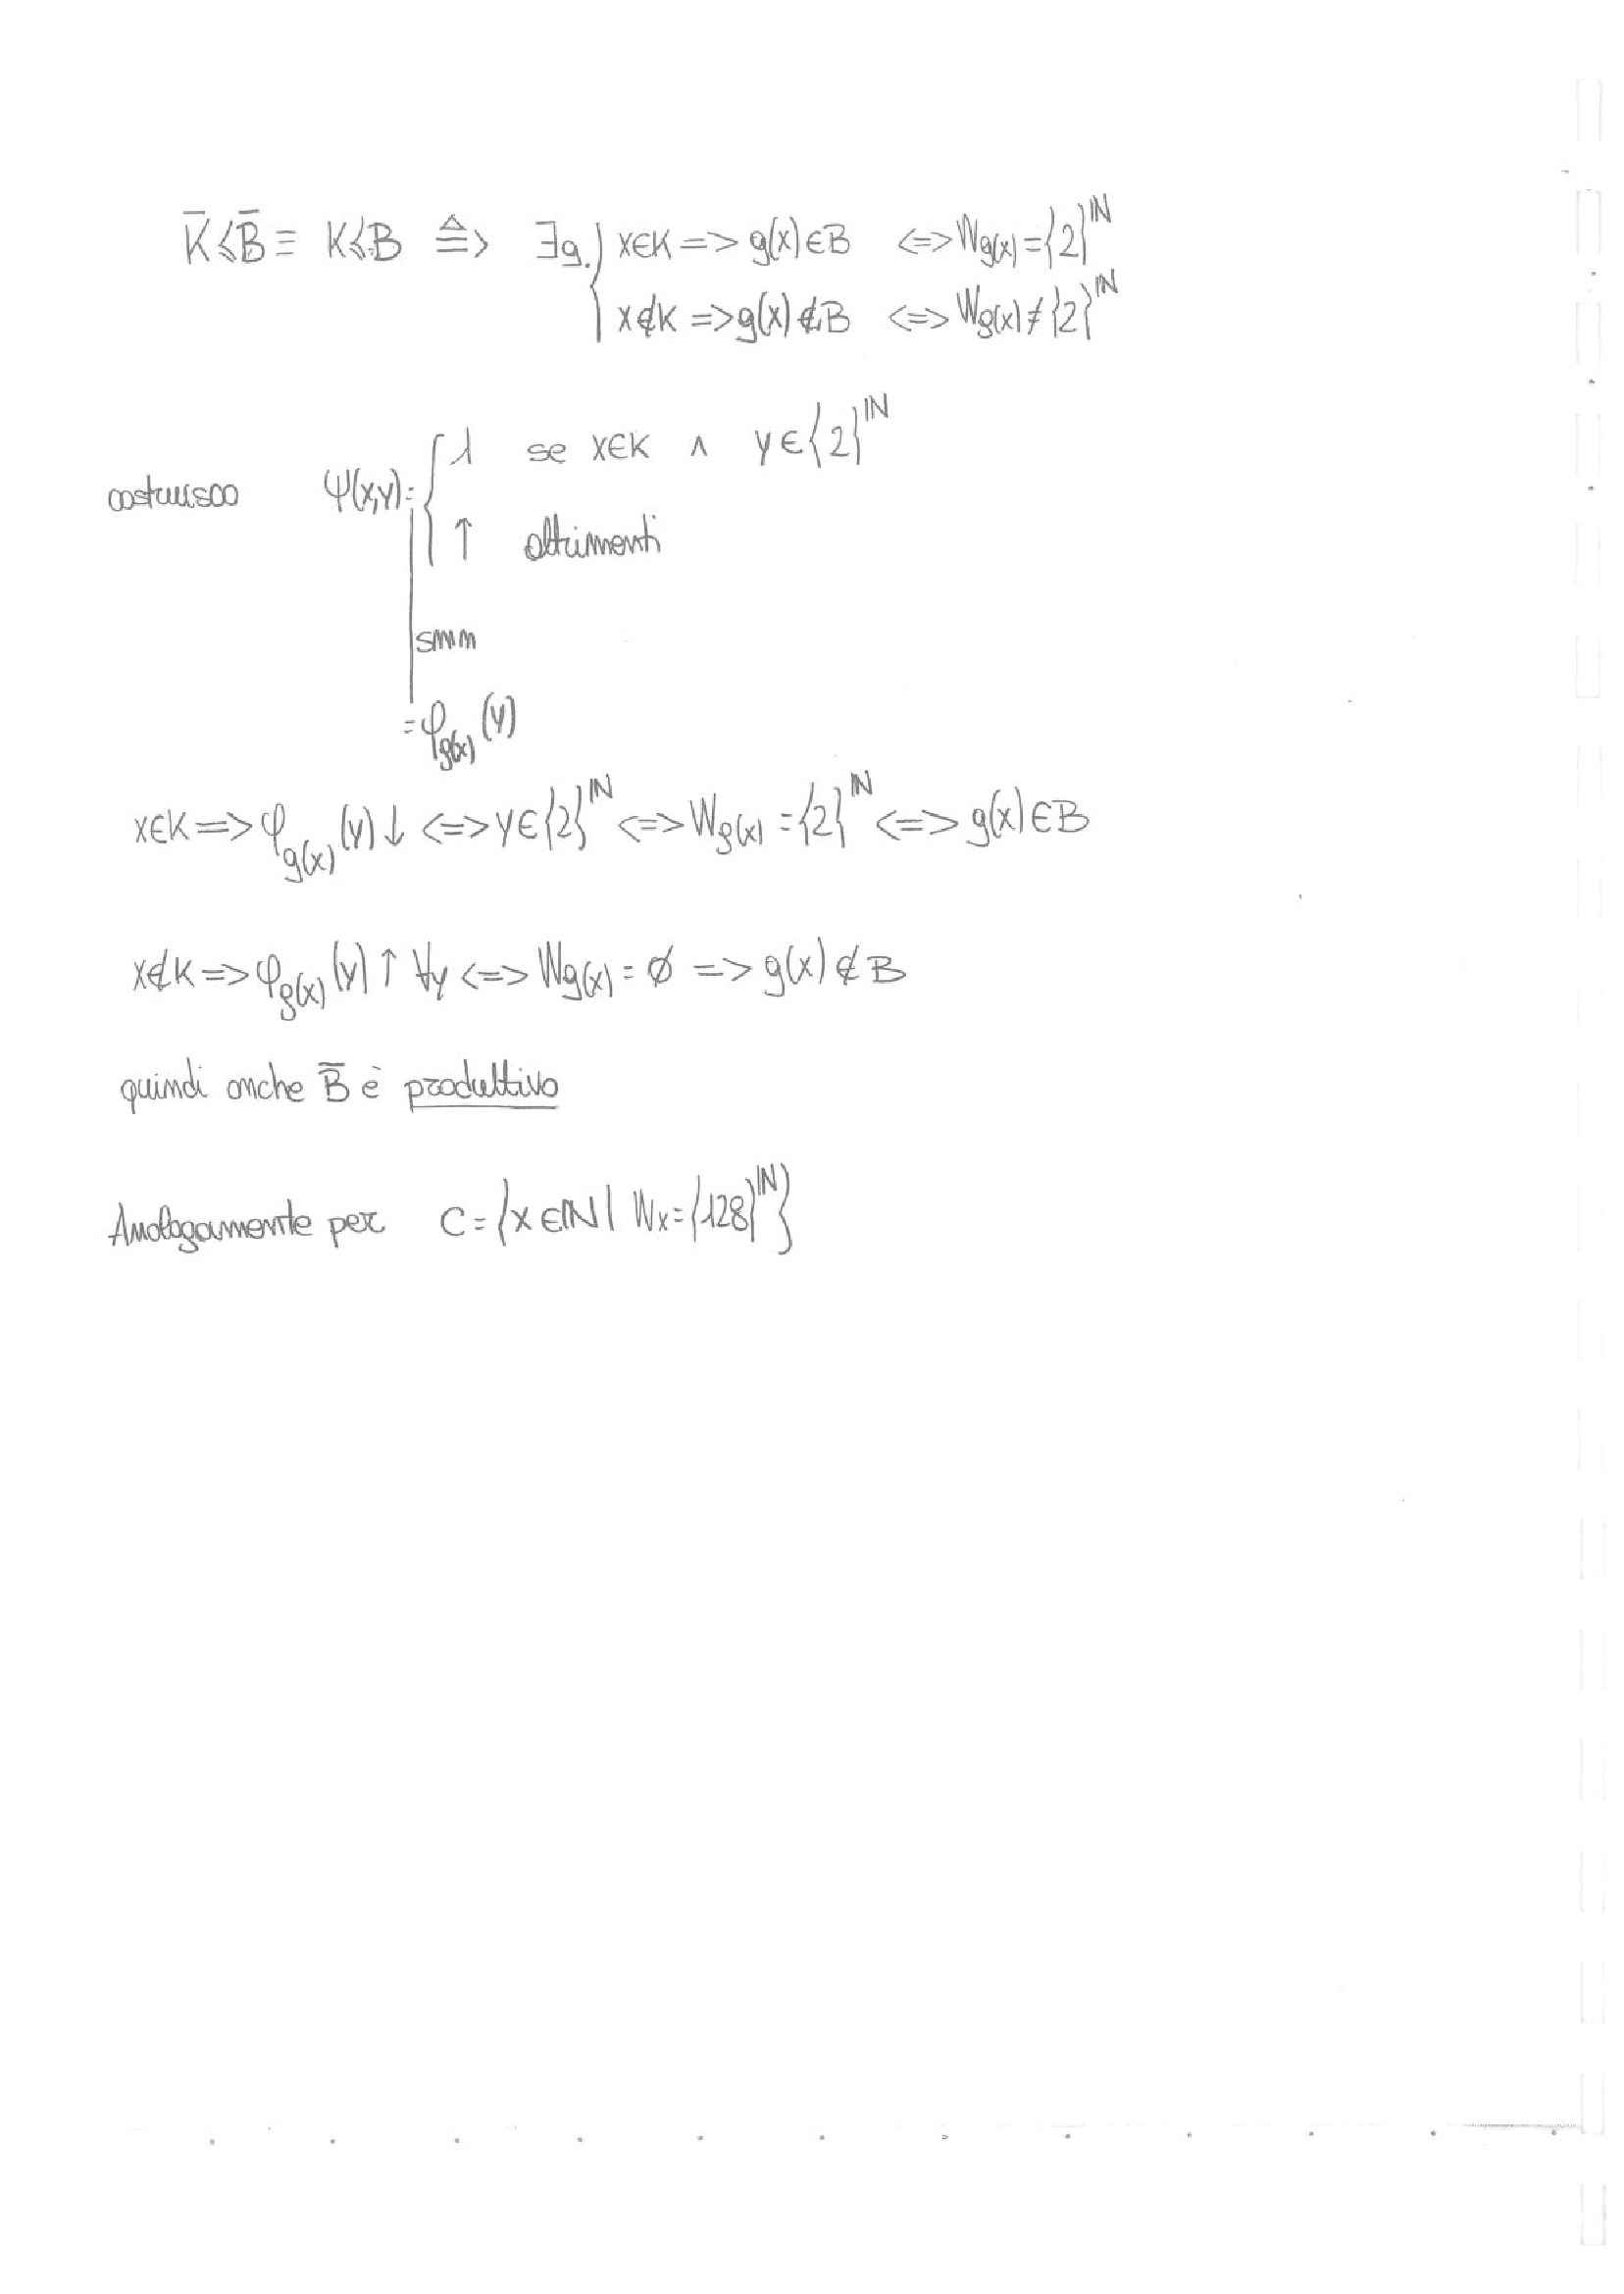 K̅ ≤ B̅ ≡ K ≤ B ≙> ∃g. { x∈K => g(x)∈B <=> W_g(x) = {2}^ℕ
x∉K => g(x)∉B <=> W_g(x) ≠ {2}^ℕ
costruisco ψ(x,y) = { 1 se x∈K ∧ y∈{2}^ℕ
↑ altrimenti
smn
= φ_g(x) (y)
x∈K => φ_g(x) (y)↓ <=> y∈{2}^ℕ <=> W_g(x) = {2}^ℕ <=> g(x)∈B
x∉K => φ_g(x) (y)↑ ∀y <=> W_g(x) = ∅ => g(x)∉B
quindi anche B̅ è produttivo
Analogamente per C = {x∈ℕ | Wx = {128}^ℕ}